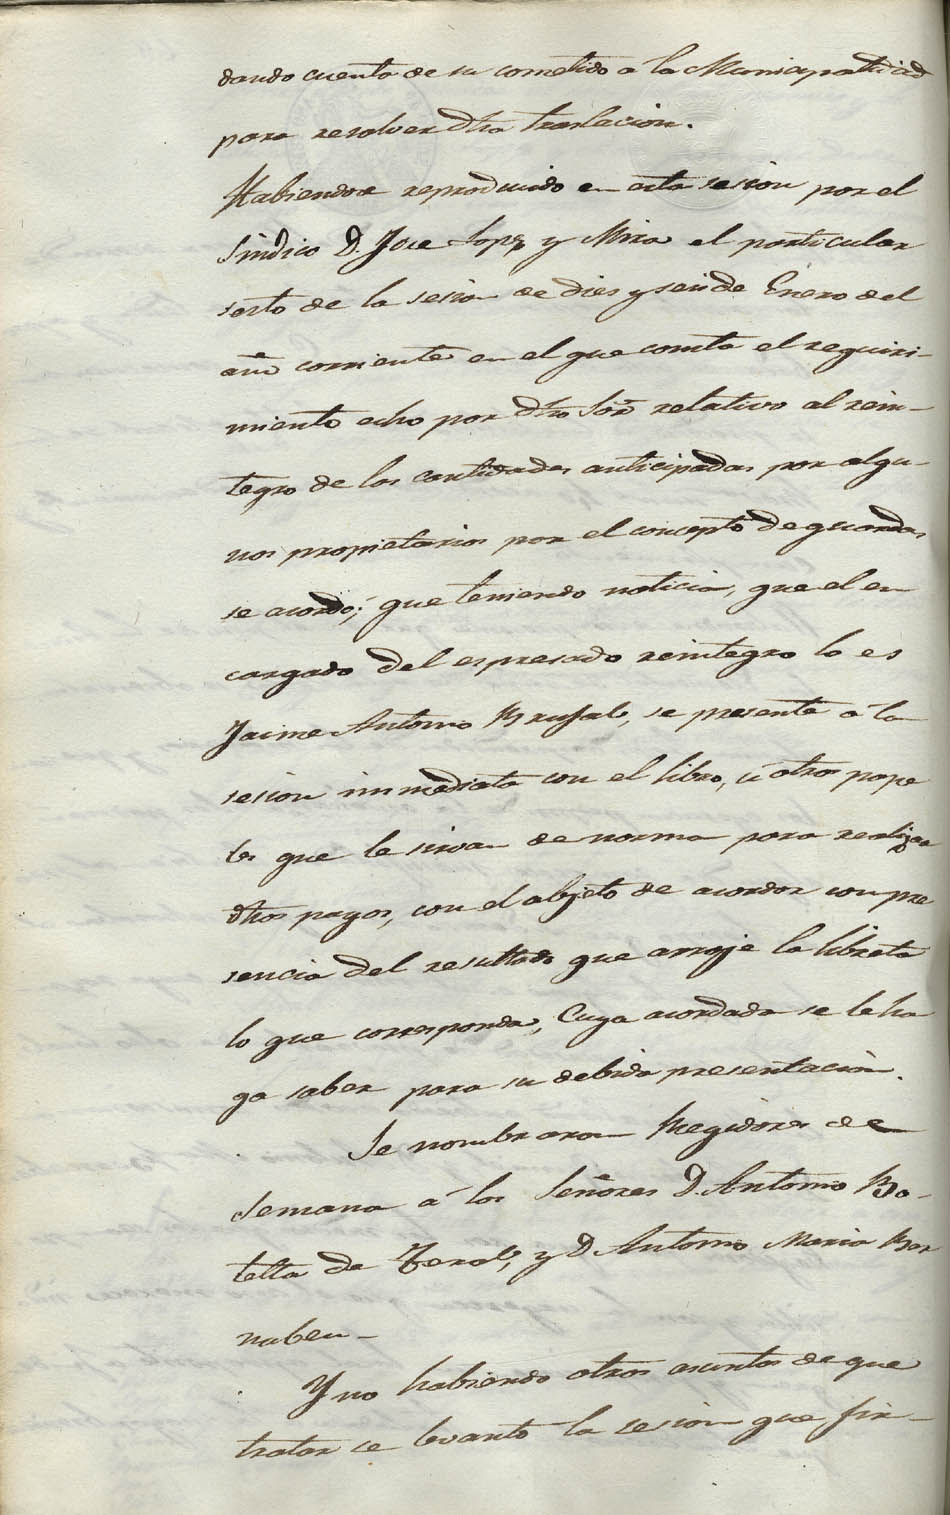 dando cuenta de su cometido a la Municipalidad
para resolver dha traslacion.
Habiendose reproducido en esta sesion por el
Sindico D. Jose Lopez y Mira el particular
sesto de la sesion de dies y seis de Enero del
año corriente en el que consta el requiri-
miento echo por dho Sor relativo al rein-
tegro de las cantidades anticipadas por algu-
nos propietarios por el concepto de guardas
se acordo; que teniendo noticia, que el en
cargado del espresado reintegro lo es
Jaime Antonio Brufal, se presente a la
sesion immediata con el libro, ú otros pape
les que le sirvan de norma para realizar
dhos pagos, con el objeto de acordar con pre
sencia del resultado que arroje la libreta
lo que corresponda, Cuya acordada se le ha
ga saber para su debida presentacion.
Se nombraron Regidores de
semana a los Señores D. Antonio Bo-
tella de Terol, y D Antonio Maria Ber
nabeu-
Y no habiendo otros asuntos de que
tratar se levanto la sesion que fir-